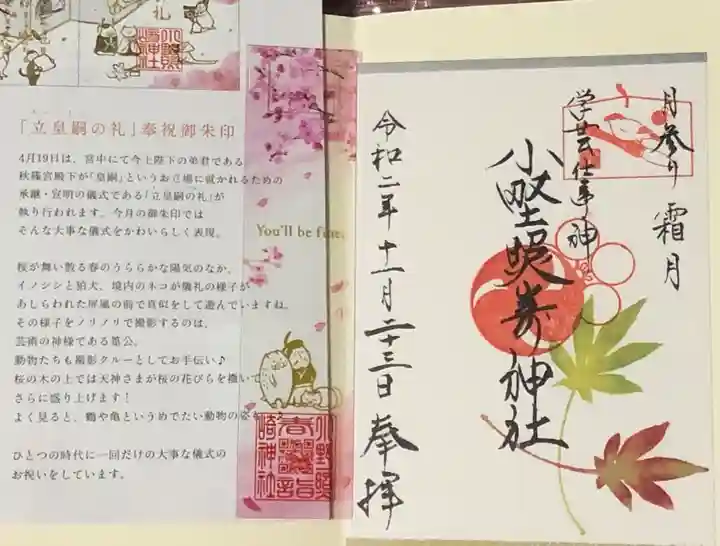 礼
「立皇嗣の礼」奉祝御朱印
4月19日は、宮中にて今上陛下の弟君である
秋篠宮殿下が「皇嗣」というお立場に就かれるための
承継・宣明の儀式である「立皇嗣の礼」が
執り行われます。今月の御朱印では
そんな大事な儀式をかわいらしく表現。
桜が舞い散る春のうららかな陽気のなか、
イノシシと狛犬、境内のネコが儀礼の様子が
あしらわれた屏風の前で真似をして遊んでいますね。
その様子をノリノリで撮影するのは、
芸術の神様である篁公。
動物たちも撮影クルーとしてお手伝い♪
桜の木の上では天神さまが桜の花びらを撒いて
さらに盛り上げます!
よく見ると、鶴や亀というめでたい動物の姿も
ひとつの時代に一回だけの大事な儀式の
お祝いをしています。
You'll be fine.
小野照
崎神社
月参り 霜月
学芸仕事神
小野照崎神社
令和二年十一月二十三日 奉拝